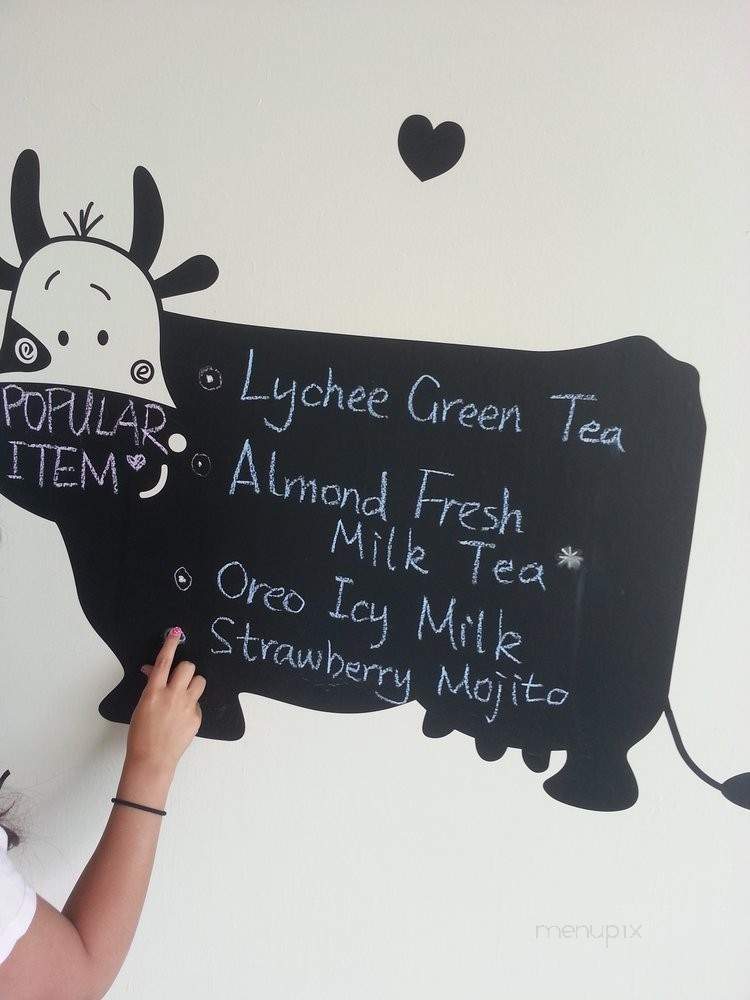 POPULAR
ITEM
Lychee Green Tea
Almond Fresh
Milk Tea *
Oreo Icy Milk
Strawberry Mojito
menupix